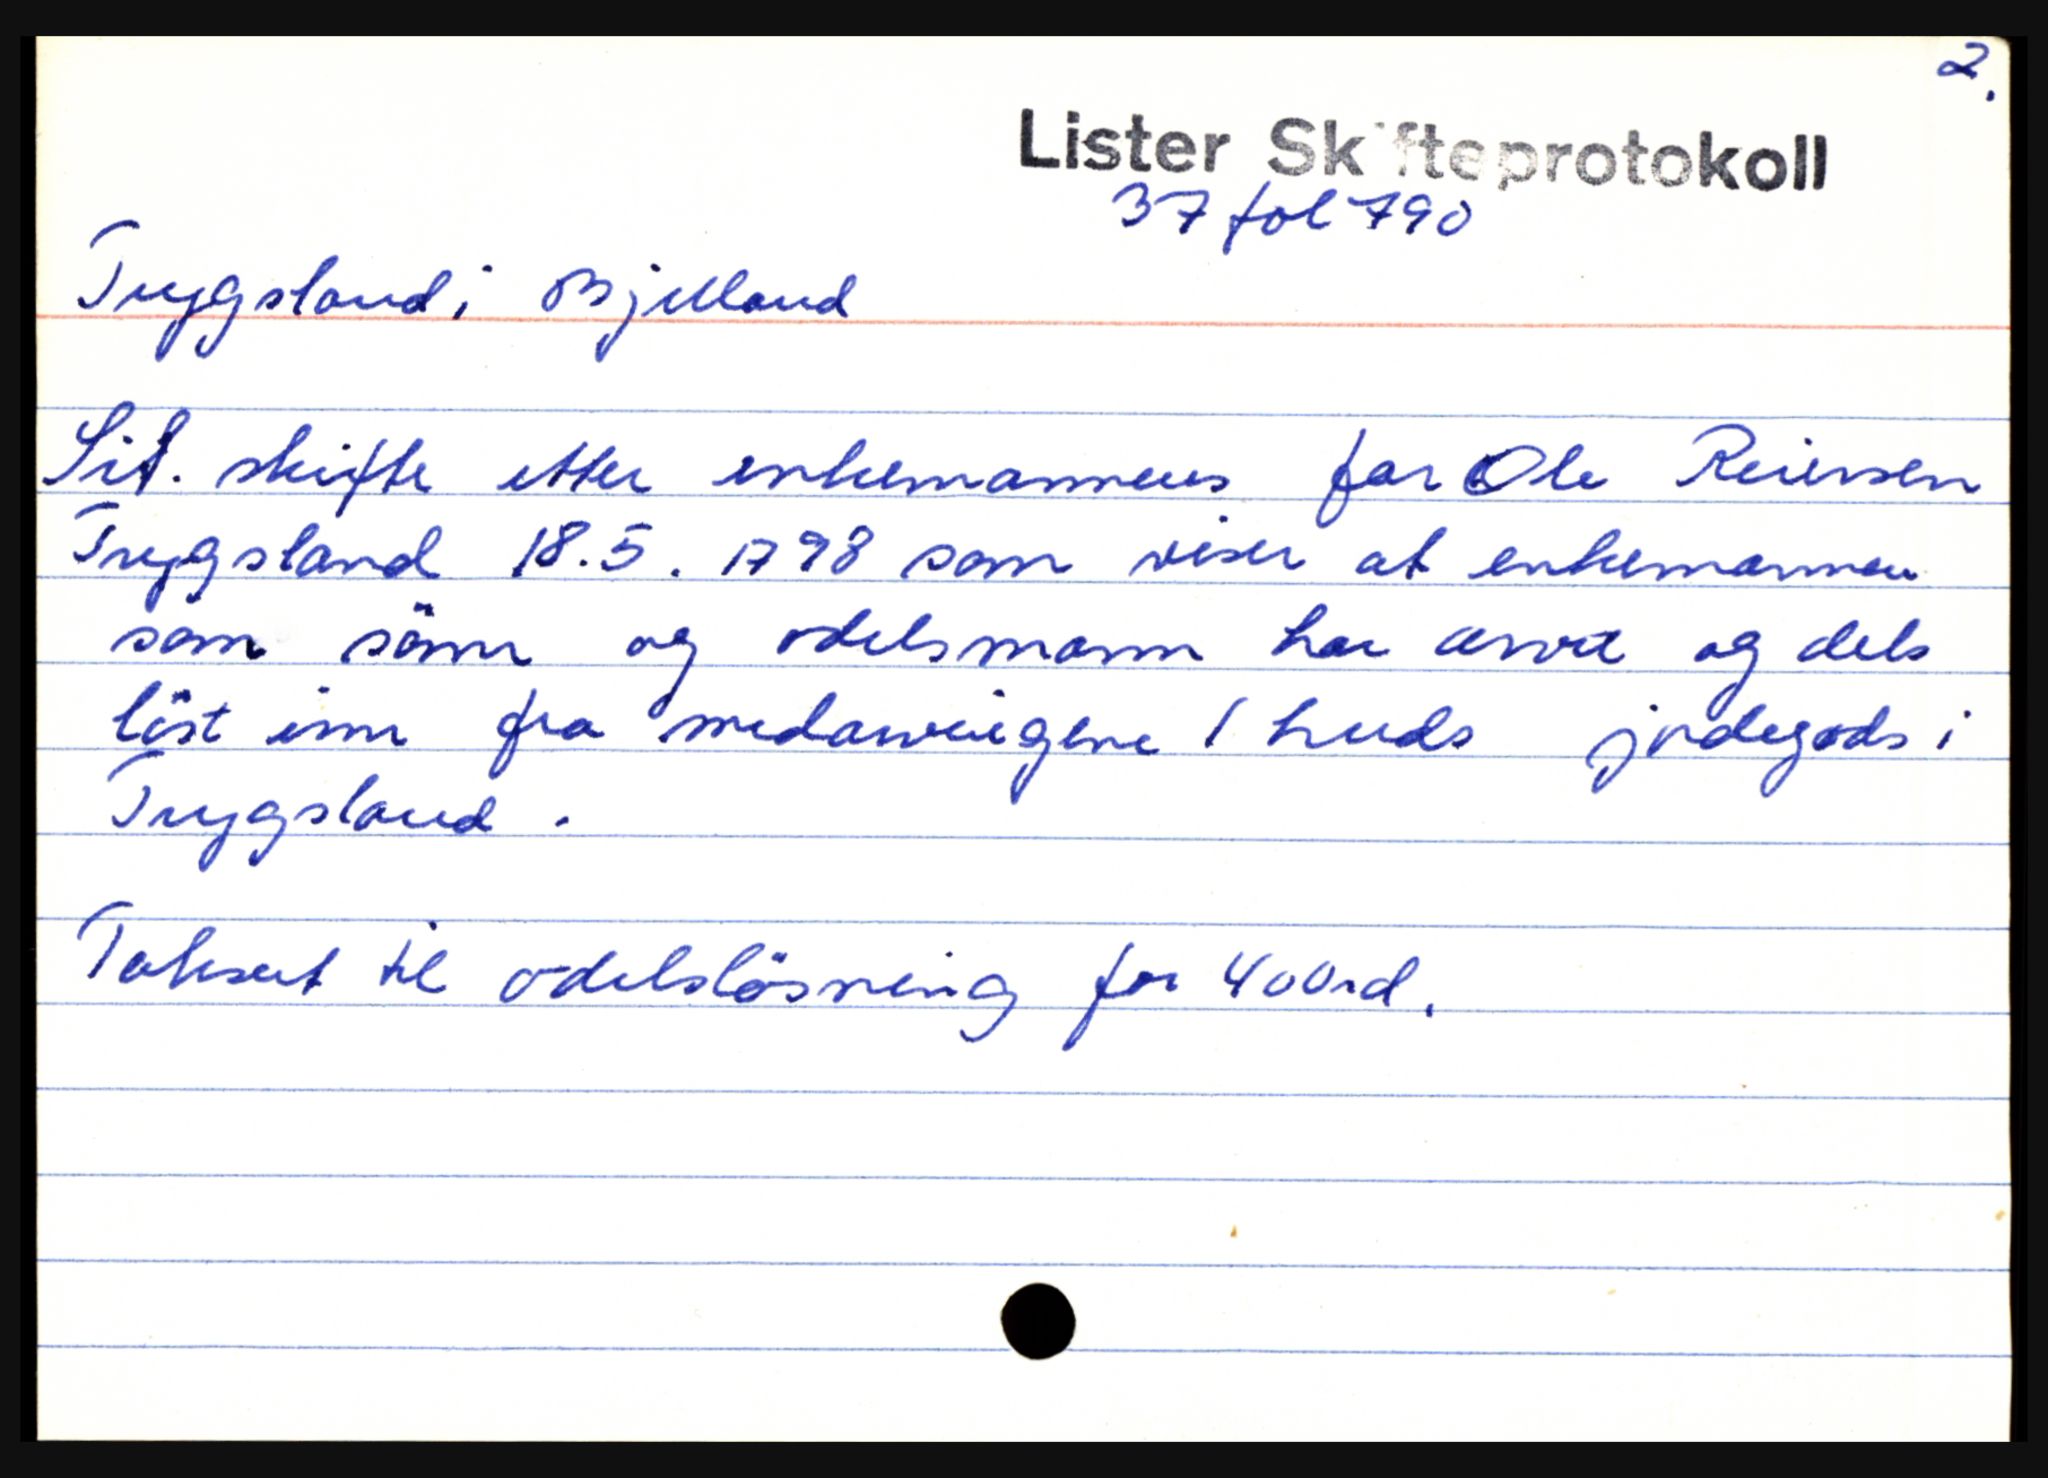 2.
Lister Skifteprotokoll
37 fol 790
Trygsland i Bjelland
Sit. skifte etter enkemannens far Ole Reiersen
Trygsland 18.5.1798 som viser at enkemannen
som sönn og odelsmann har arvet og dels
löst inn fra medarvingene 1 huds jordegods i
Trygsland.
Taksert til odelslösning for 400rd.